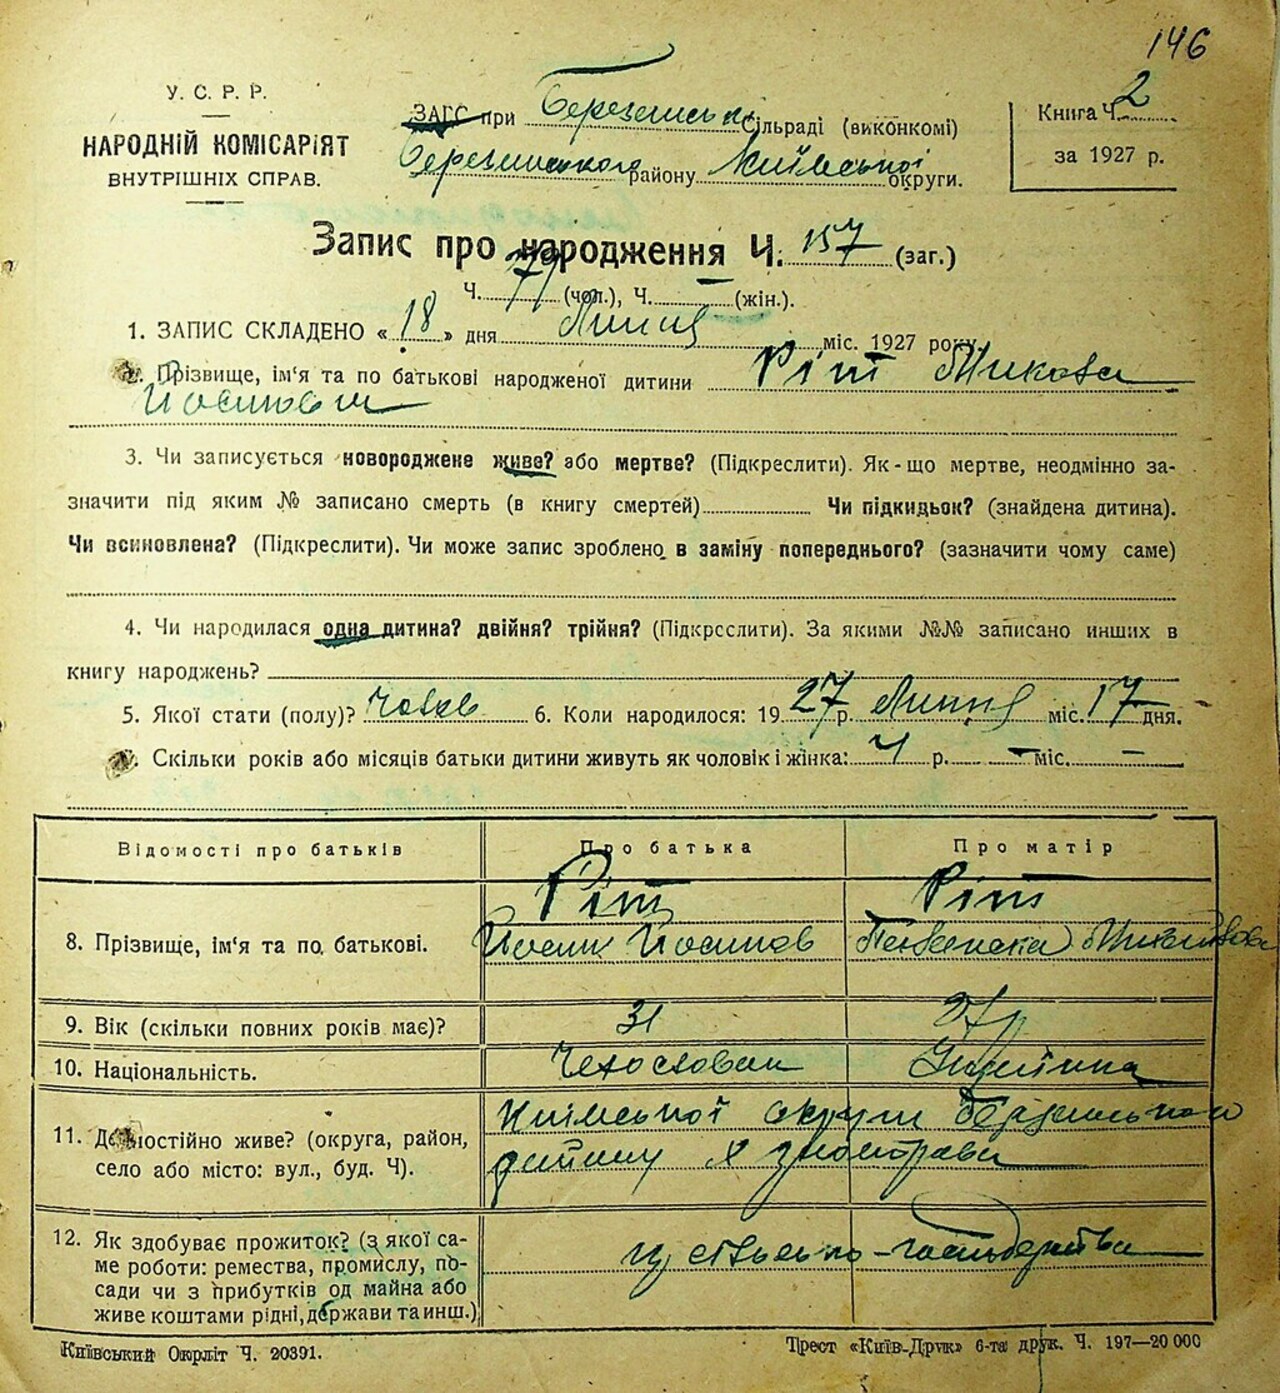 146
У. С. Р. Р.
НАРОДНІЙ КОМІСАРІЯТ
ВНУТРІШНІХ СПРАВ.
ЗАГС при Березанській Сільраді (виконкомі)
Березанського району Київської округи.
Книга Ч. 2
за 1927 р.
Запис про народження Ч. 157 (заг.)
Ч. 79 (чол.), Ч. – (жін.).
1. ЗАПИС СКЛАДЕНО «18» дня Липця міс. 1927 року.
2. Прізвище, ім‘я та по батькові народженої дитини Ріт Микола
Йосипович
3. Чи записується новороджене живе? або мертве? (Підкреслити). Як-що мертве, неодмінно за-
значити під яким № записано смерть (в книгу смертей) Чи підкидьок? (знайдена дитина).
Чи всиновлена? (Підкреслити). Чи може запис зроблено в заміну попереднього? (зазначити чому саме)
4. Чи народилася одна дитина? двійня? трійня? (Підкреслити). За якими №№ записано инших в
книгу народжень?
5. Якої стати (полу)? Чолов 6. Коли народилося: 1927 р. Липця міс. 17 дня.
Скільки років або місяців батьки дитини живуть як чоловік і жінка: 4 р. – міс. –
Відомості про батьків Про батька Про матір
Ріт Ріт
8. Прізвище, ім‘я та по батькові. Йосип Йосипов
9. Вік (скільки повних років має)? 31 27 р
10. Національність. Чехословак
Київської округи
11. Де постійно живе? (округа, район,
село або місто: вул., буд. Ч).
12. Як здобуває прожиток? (з якої са-
ме роботи: ремества, промислу, по-
сади чи з прибутків од майна або
живе коштами рідні, держави та инш.) сільсько-господарства
Київський Окрліт Ч. 20391.
Трест «Київ-Друк» 6-та друк. Ч. 197—20 000